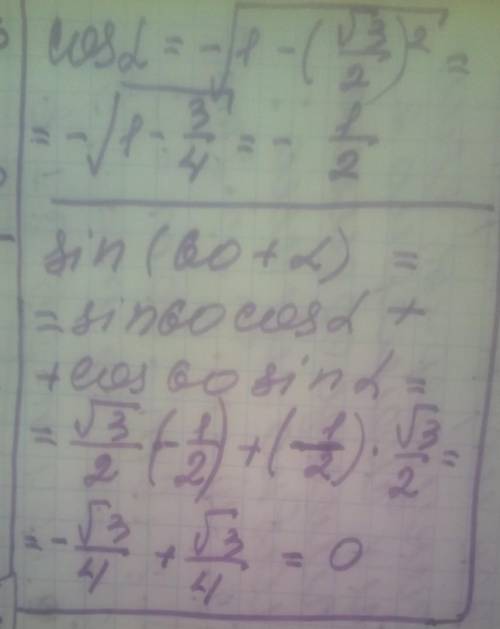 cosα = -√(1 - (√3/2)²) =
= -√(1 - 3/4) = - 1/2
sin(60+α) =
= sin60cosα +
+cos60sinα =
= √3/2 (-1/2) + (1/2) · √3/2 =
= -√3/4 + √3/4 = 0